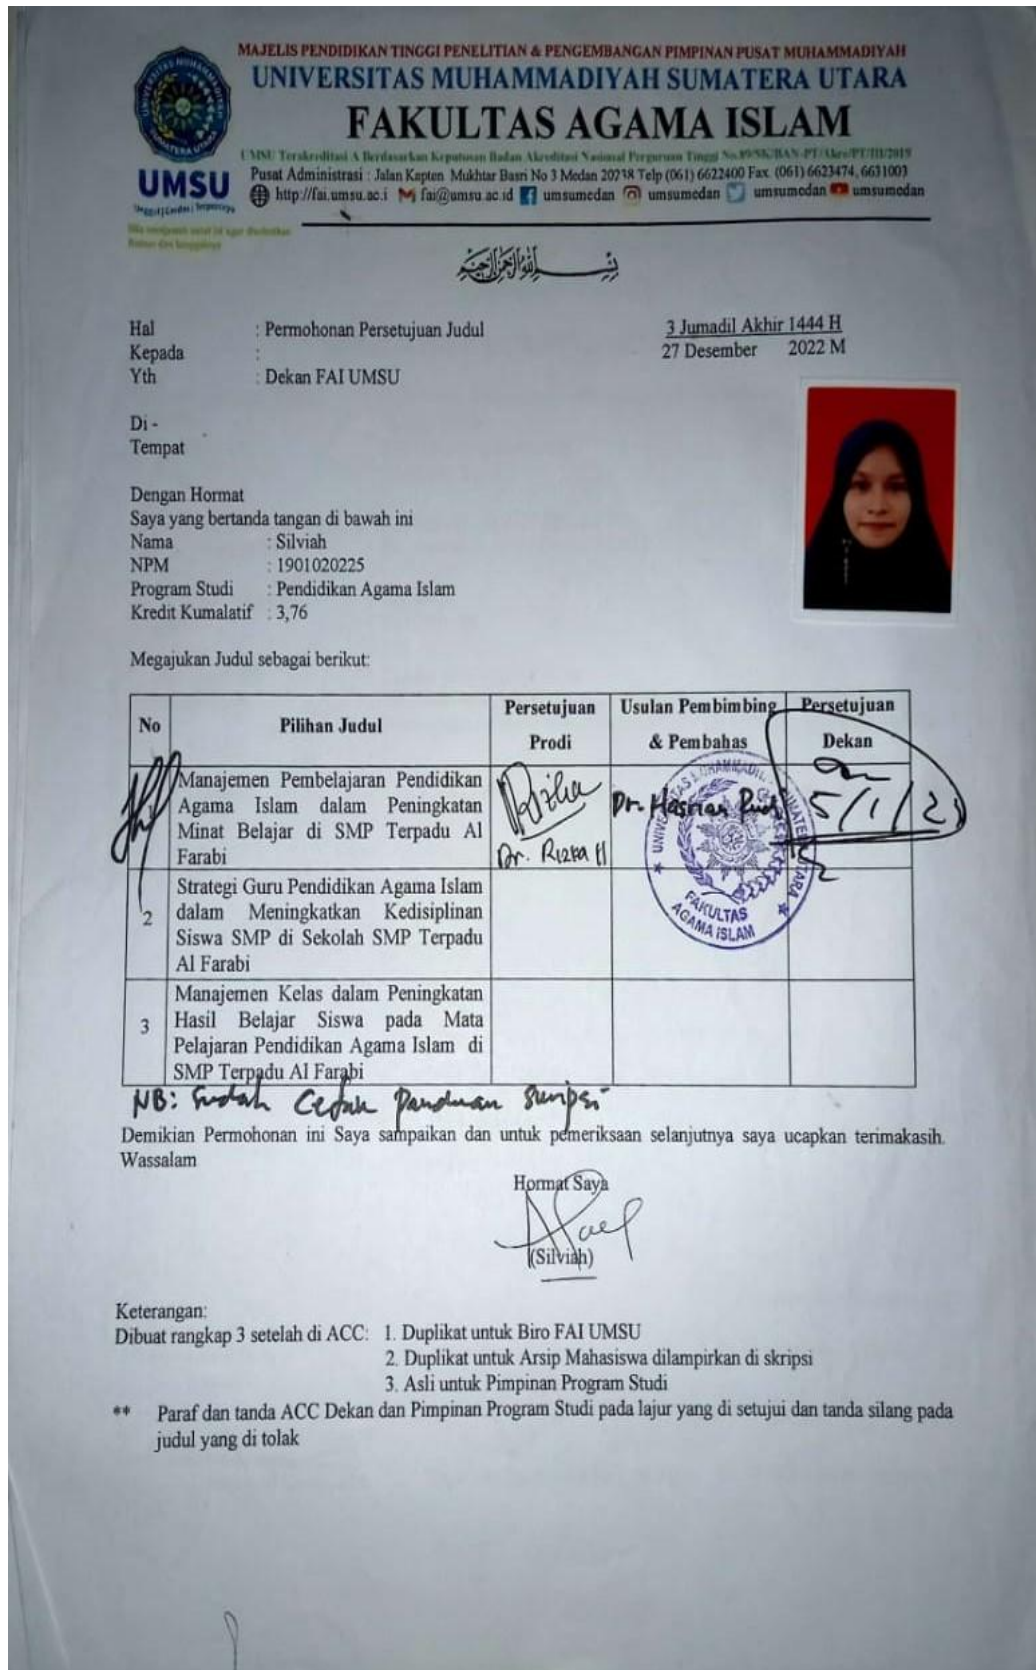 MAJELIS PENDIDIKAN TINGGI PENELITIAN & PENGEMBANGAN PIMPINAN PUSAT MUHAMMADIYAH
UNIVERSITAS MUHAMMADIYAH SUMATERA UTARA
FAKULTAS AGAMA ISLAM
UMSU Terakreditasi A Berdasarkan Keputusan Badan Akreditasi Nasional Perguruan Tinggi No.89/SK/BAN-PT/Akre/PT/III/2019
Pusat Administrasi : Jalan Kapten Mukhtar Basri No 3 Medan 20238 Telp (061) 6622400 Fax. (061) 6623474, 6631003
http://fai.umsu.ac.i fai@umsu.ac.id umsumedan umsumedan umsumedan umsumedan
UMSU
Unggul | Cerdas | Terpercaya
بِسْمِ اللَّهِ الرَّحْمَنِ الرَّحِيمِ
Hal : Permohonan Persetujuan Judul 3 Jumadil Akhir 1444 H
Kepada : 27 Desember 2022 M
Yth : Dekan FAI UMSU
Di -
Tempat
Dengan Hormat
Saya yang bertanda tangan di bawah ini
Nama : Silviah
NPM : 1901020225
Program Studi : Pendidikan Agama Islam
Kredit Kumalatif : 3,76
Megajukan Judul sebagai berikut:
No Pilihan Judul Persetujuan Prodi Usulan Pembimbing & Pembahas Persetujuan Dekan
Manajemen Pembelajaran Pendidikan
Agama Islam dalam Peningkatan
Minat Belajar di SMP Terpadu Al
Farabi
Rizka
Dr. Rizka H
Dr. Hasrian
UNIVERSITAS MUHAMMADIYAH SUMATERA UTARA
FAKULTAS
AGAMA ISLAM
2 Strategi Guru Pendidikan Agama Islam
dalam Meningkatkan Kedisiplinan
Siswa SMP di Sekolah SMP Terpadu
Al Farabi
3 Manajemen Kelas dalam Peningkatan
Hasil Belajar Siswa pada Mata
Pelajaran Pendidikan Agama Islam di
SMP Terpadu Al Farabi
NB: Sudah Cetak Panduan Skripsi
Demikian Permohonan ini Saya sampaikan dan untuk pemeriksaan selanjutnya saya ucapkan terimakasih.
Wassalam
Hormat Saya
(Silviah)
Keterangan:
Dibuat rangkap 3 setelah di ACC: 1. Duplikat untuk Biro FAI UMSU
2. Duplikat untuk Arsip Mahasiswa dilampirkan di skripsi
3. Asli untuk Pimpinan Program Studi
** Paraf dan tanda ACC Dekan dan Pimpinan Program Studi pada lajur yang di setujui dan tanda silang pada
judul yang di tolak